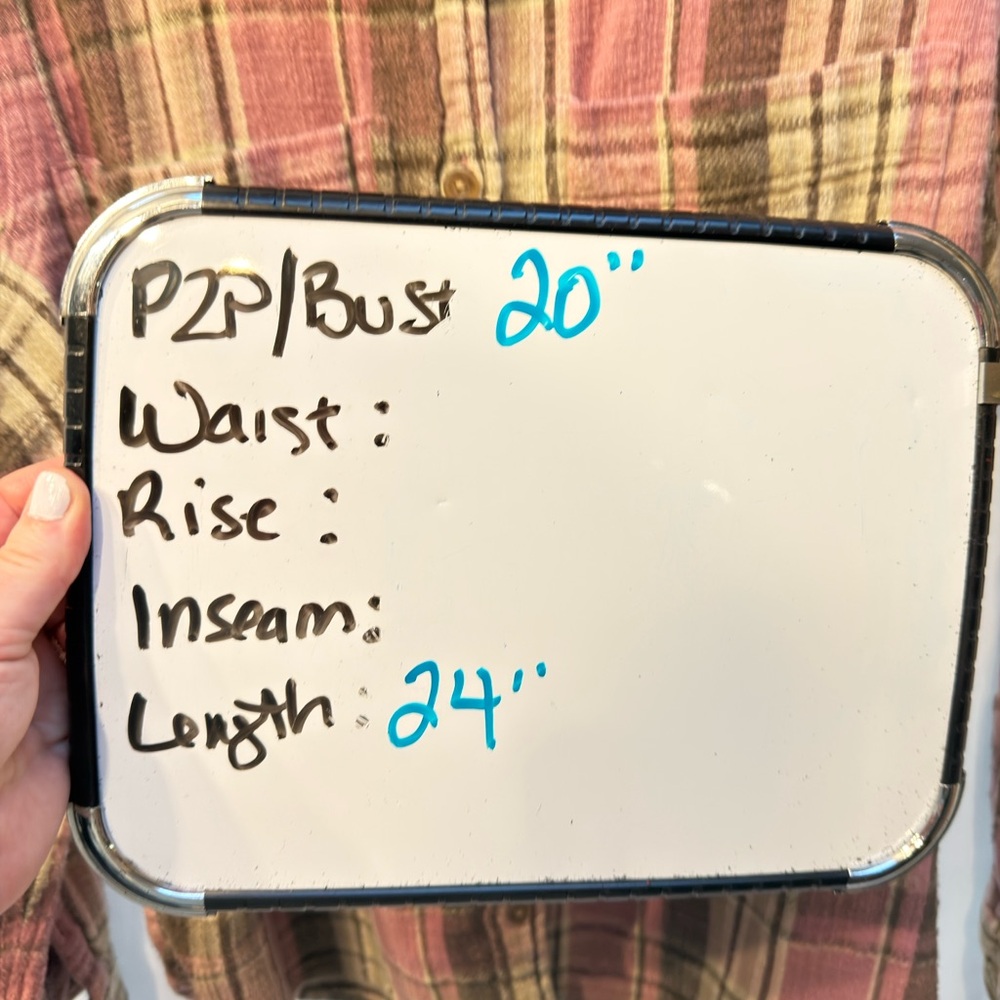 P2P/Bust 20"
Waist:
Rise:
Inseam:
Length: 24"